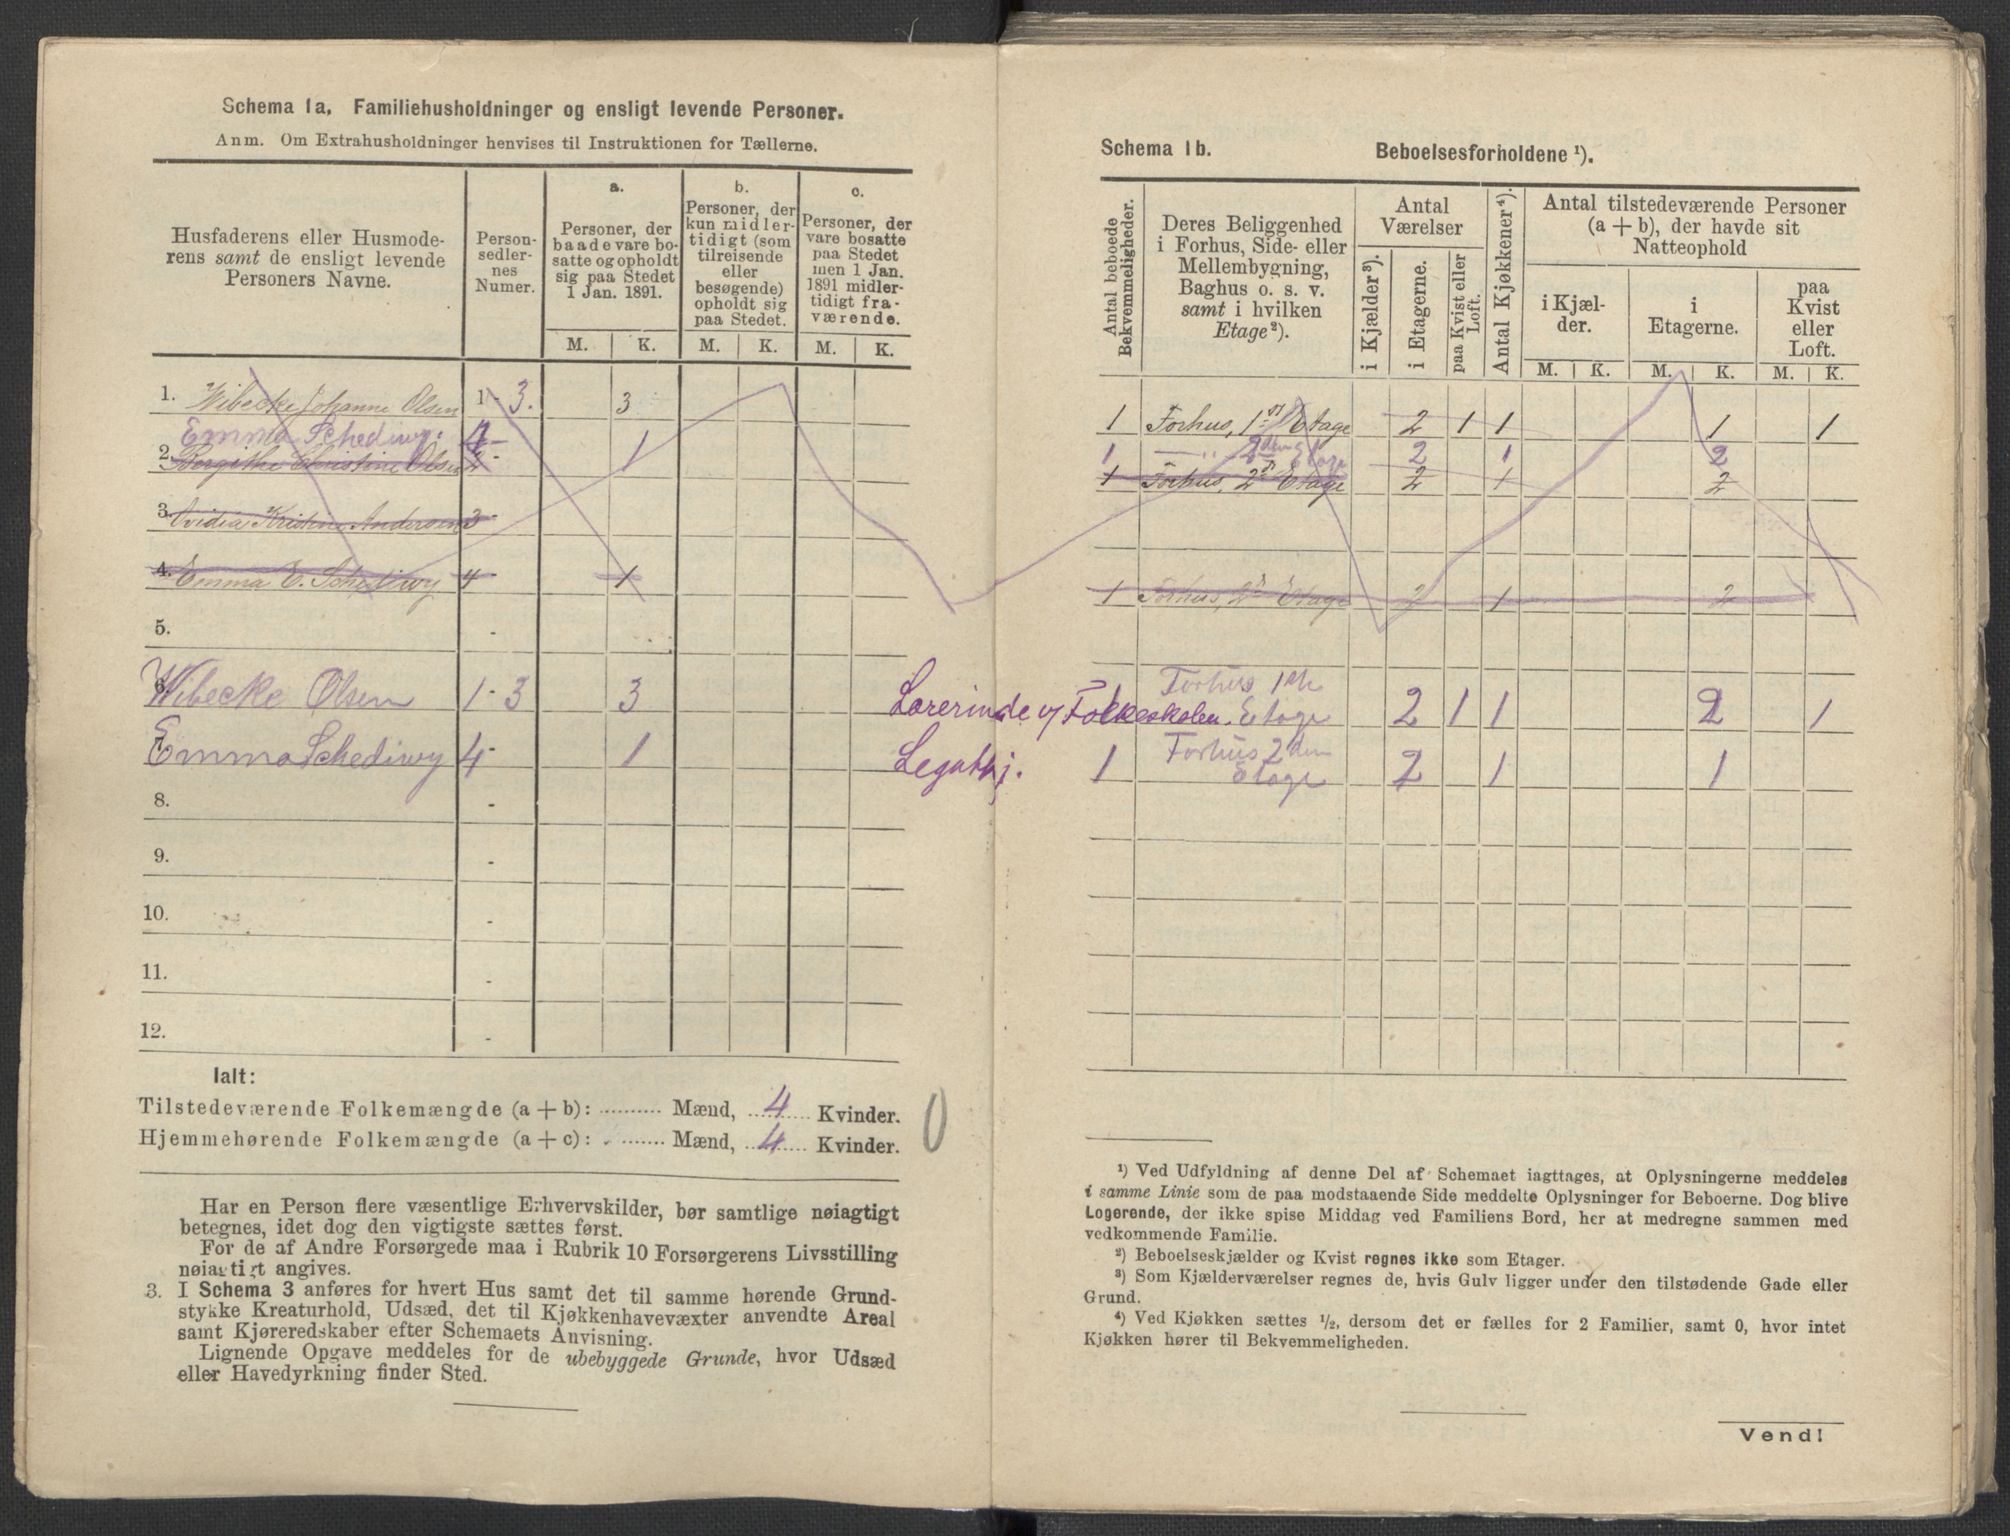 Schema 1a. Familiehusholdninger og ensligt levende Personer.
Anm. Om Extrahusholdninger henvises til Instruktionen for Tællerne.
Husfaderens eller Husmode-
rens samt de ensligt levende
Personers Navne.
Person-
sedler-
nes
Numer.
a.
Personer, der
baade vare bo-
satte og opholdt
sig paa Stedet
1 Jan. 1891.
b.
Personer, der
kun midler-
tidigt (som
tilreisende
eller
besøgende)
opholdt sig
paa Stedet.
c.
Personer, der
vare bosatte
paa Stedet
men 1 Jan.
1891 midler-
tidigt fra-
værende.
M. K. M. K. M. K.
1. Wibecke Johanne Olsen 1 - 3. 3
Emma Schediwy. 4 1
2. Bergithe Christine Olsen 2 -
3. Ovidia Kristine Andersen 3 -
4. Emma E. Schediwy 4 - 1
5. -
6. Wibecke Olsen 1 - 3 3
Emma Schediwy 4 - 1
8. -
9. -
10. -
11. -
12. -
Ialt:
Tilstedeværende Folkemængde (a + b): .......... Mænd, 4 Kvinder.
Hjemmehørende Folkemængde (a + c): .......... Mænd, 4 Kvinder.
0
Har en Person flere væsentlige Erhvervskilder, bør samtlige nøiagtigt
betegnes, idet dog den vigtigste sættes først.
For de af Andre Forsørgede maa i Rubrik 10 Forsørgerens Livsstilling
nøiagtigt angives.
3. I Schema 3 anføres for hvert Hus samt det til samme hørende Grund-
stykke Kreaturhold, Udsæd, det til Kjøkkenhavevæxter anvendte Areal
samt Kjøreredskaber efter Schemaets Anvisning.
Lignende Opgave meddeles for de ubebyggede Grunde, hvor Udsæd
eller Havedyrkning finder Sted.
Schema 1b. Beboelsesforholdene ¹).
Antal beboede
Bekvemmeligheder.
Deres Beliggenhed
i Forhus, Side- eller
Mellembygning,
Baghus o. s. v.
samt i hvilken
Etage ²).
Antal
Værelser
i Kjælder ³).
i Etagerne.
paa Kvist eller
Loft.
Antal Kjøkkener ⁴).
Antal tilstedeværende Personer
(a + b), der havde sit
Natteophold
i Kjæl-
der.
i
Etagerne.
paa
Kvist
eller
Loft.
M. K. M. K. M. K.
1 Forhus, 1st Etage 2 1 1 1 1
1 — „ — 2den Etage 2 1 2
1 Forhus, 2d Etage 2 1 2
1 Forhus, 2d Etage 2 1 2
Lærerinde v/ Folkeskolen. 1 Forhus 1ste Etage 2 1 1 2 1
Legathj. 1 Forhus 2den Etage 2 1 1
¹) Ved Udfyldning af denne Del af Schemaet iagttages, at Oplysningerne meddeles
i samme Linie som de paa modstaaende Side meddelte Oplysninger for Beboerne. Dog blive
Logerende, der ikke spise Middag ved Familiens Bord, her at medregne sammen med
vedkommende Familie.
²) Beboelseskjælder og Kvist regnes ikke som Etager.
³) Som Kjælderværelser regnes de, hvis Gulv ligger under den tilstødende Gade eller
Grund.
⁴) Ved Kjøkken sættes ½, dersom det er fælles for 2 Familier, samt 0, hvor intet
Kjøkken hører til Bekvemmeligheden.
Vend!